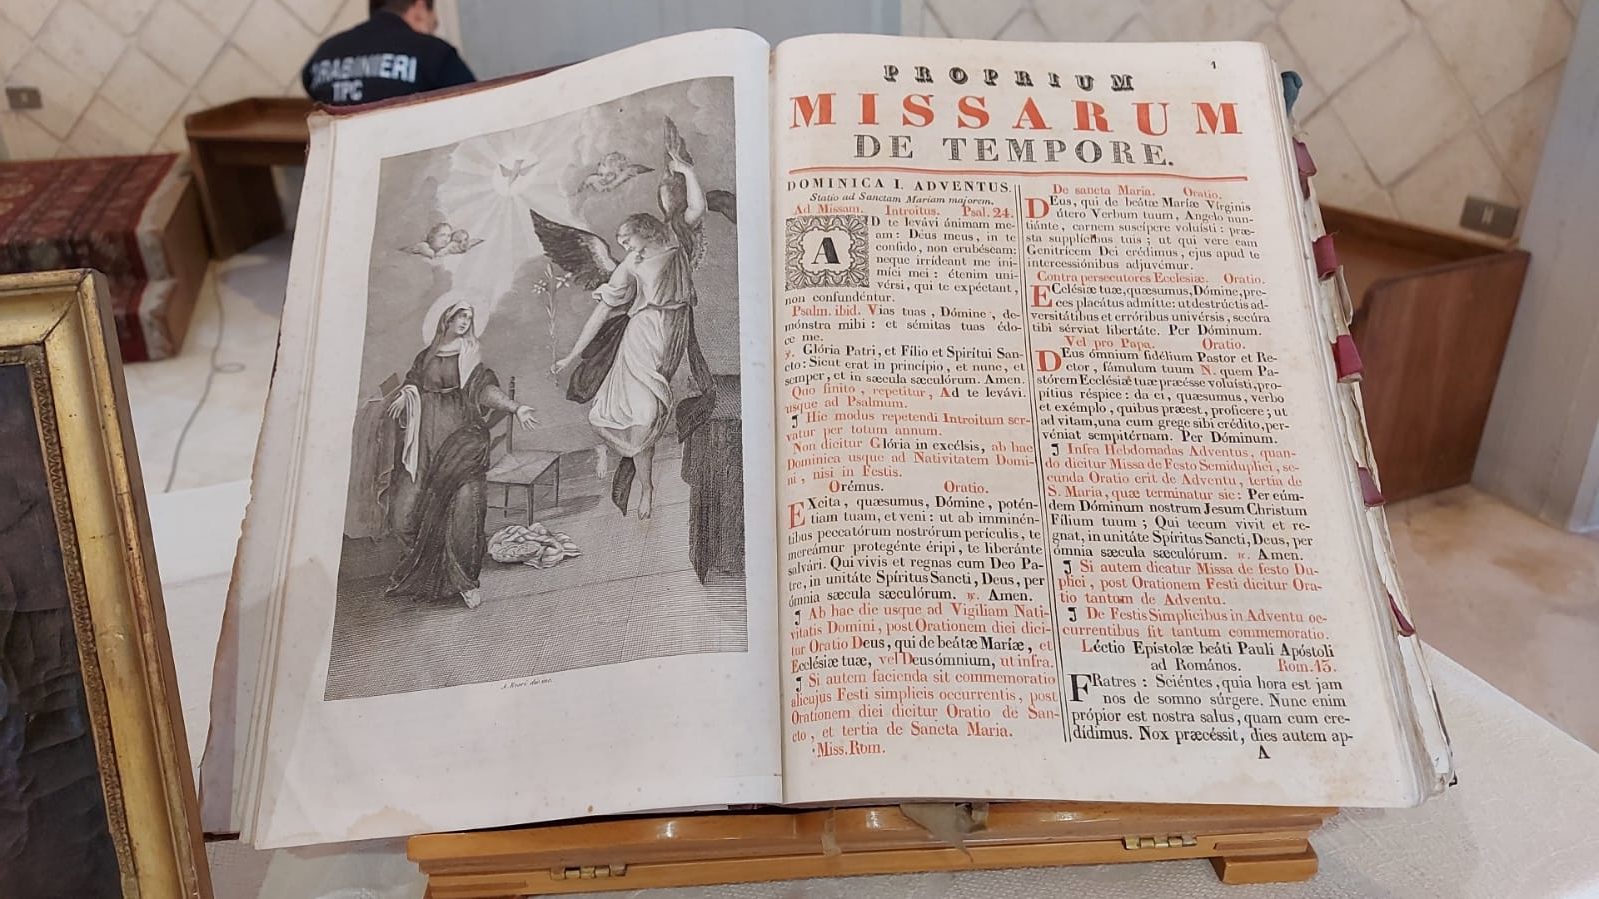 CARABINIERI
TPC
1
PROPRIUM
MISSARUM
DE TEMPORE.
DOMINICA I. ADVENTUS.
Statio ad Sanctam Mariam majorem.
Ad Missam. Introitus. Psal. 24.
AD te levávi ánimam me-
am: Deus meus, in te
confído, non erubéscam:
neque irrídeant me ini-
míci mei: étenim uni-
vérsi, qui te expéctant,
non confundéntur.
Psalm. ibid. Vias tuas, Dómine, de-
mónstra mihi: et sémitas tuas édo-
ce me.
℣. Glória Patri, et Fílio et Spirítui San-
cto: Sicut erat in princípio, et nunc, et
semper, et in sæcula sæculórum. Amen.
Quo finito, repetitur, Ad te levávi.
usque ad Psalmum.
¶ Hic modus repetendi Introitum ser-
vatur per totum annum.
Non dicitur Glória in excélsis, ab hac
Dominica usque ad Nativitatem Domi-
ni, nisi in Festis.
Orémus. Oratio.
EXcita, quæsumus, Dómine, potén-
tiam tuam, et veni: ut ab imminén-
tibus peccatórum nostrórum perículis, te
mereámur protegénte éripi, te liberánte
salvári. Qui vivis et regnas cum Deo Pa-
tre, in unitáte Spíritus Sancti, Deus, per
ómnia sæcula sæculórum. ℟. Amen.
¶ Ab hac die usque ad Vigiliam Nati-
vitatis Domini, post Orationem diei dici-
tur Oratio Deus, qui de beátæ Maríæ, et
Ecclésiæ tuæ, vel Deus ómnium, ut infra.
¶ Si autem facienda sit commemoratio
alicujus Festi simplicis occurrentis, post
Orationem diei dicitur Oratio de San-
cto, et tertia de Sancta Maria.
Miss. Rom.
De sancta Maria. Oratio.
DEus, qui de beátæ Maríæ Vírginis
útero Verbum tuum, Angelo nun-
tiánte, carnem suscípere voluísti: præ-
sta supplícibus tuis; ut qui vere eam
Genitrícem Dei crédimus, ejus apud te
intercessiónibus adjuvémur.
Contra persecutores Ecclesiæ. Oratio.
ECclésiæ tuæ, quæsumus, Dómine, pre-
ces placátus admitte: ut destrúctis ad-
versitátibus et erróribus univérsis, secúra
tibi sérviat libertáte. Per Dóminum.
Vel pro Papa. Oratio.
DEus ómnium fidélium Pastor et Re-
ctor, fámulum tuum N. quem Pa-
stórem Ecclésiæ tuæ præésse voluísti, pro-
pítius réspice: da ei, quæsumus, verbo
et exémplo, quibus præest, profícere; ut
ad vitam, una cum grege sibi crédito, per-
véniat sempitérnam. Per Dóminum.
¶ Infra Hebdomadas Adventus, quan-
do dicitur Missa de Festo Semiduplici, se-
cunda Oratio erit de Adventu, tertia de
S. Maria, quæ terminatur sic: Per eúm-
dem Dóminum nostrum Jesum Christum
Fílium tuum; Qui tecum vivit et re-
gnat, in unitáte Spíritus Sancti, Deus, per
ómnia sæcula sæculórum. ℟. Amen.
¶ Si autem dicatur Missa de festo Du-
plici, post Orationem Festi dicitur Ora-
tio tantum de Adventu.
¶ De Festis Simplicibus in Adventu oc-
currentibus fit tantum commemoratio.
Léctio Epístolæ beáti Pauli Apóstoli
ad Romános. Rom. 13.
FRatres: Sciéntes, quia hora est jam
nos de somno súrgere. Nunc enim
própior est nostra salus, quam cum cre-
dídimus. Nox præcéssit, dies autem ap-
A